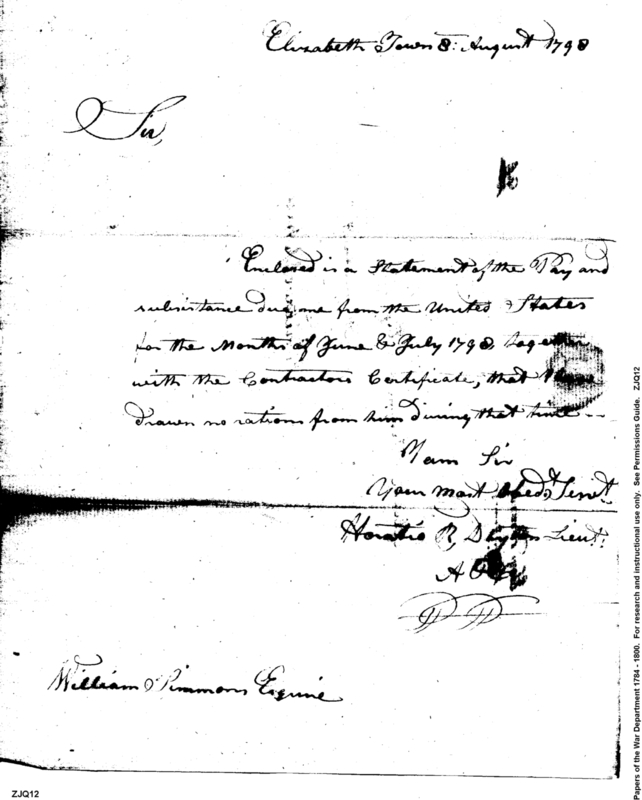 Elizabeth Town 8: August 1798
Sir,
Enclosed is a Statement of the Pay and
subsistance due me from the United States
for the Months of June & July 1798, together
with the Contractors Certificate, that I have
drawn no rations from him during that time --
I am Sir
Your most obedt Servt.
Horatio R. Dayton Lieut.
William Simmons Esquire
ZJQ12
Papers of the War Department 1784 - 1800. For research and instructional use only. See Permissions Guide. ZJQ12